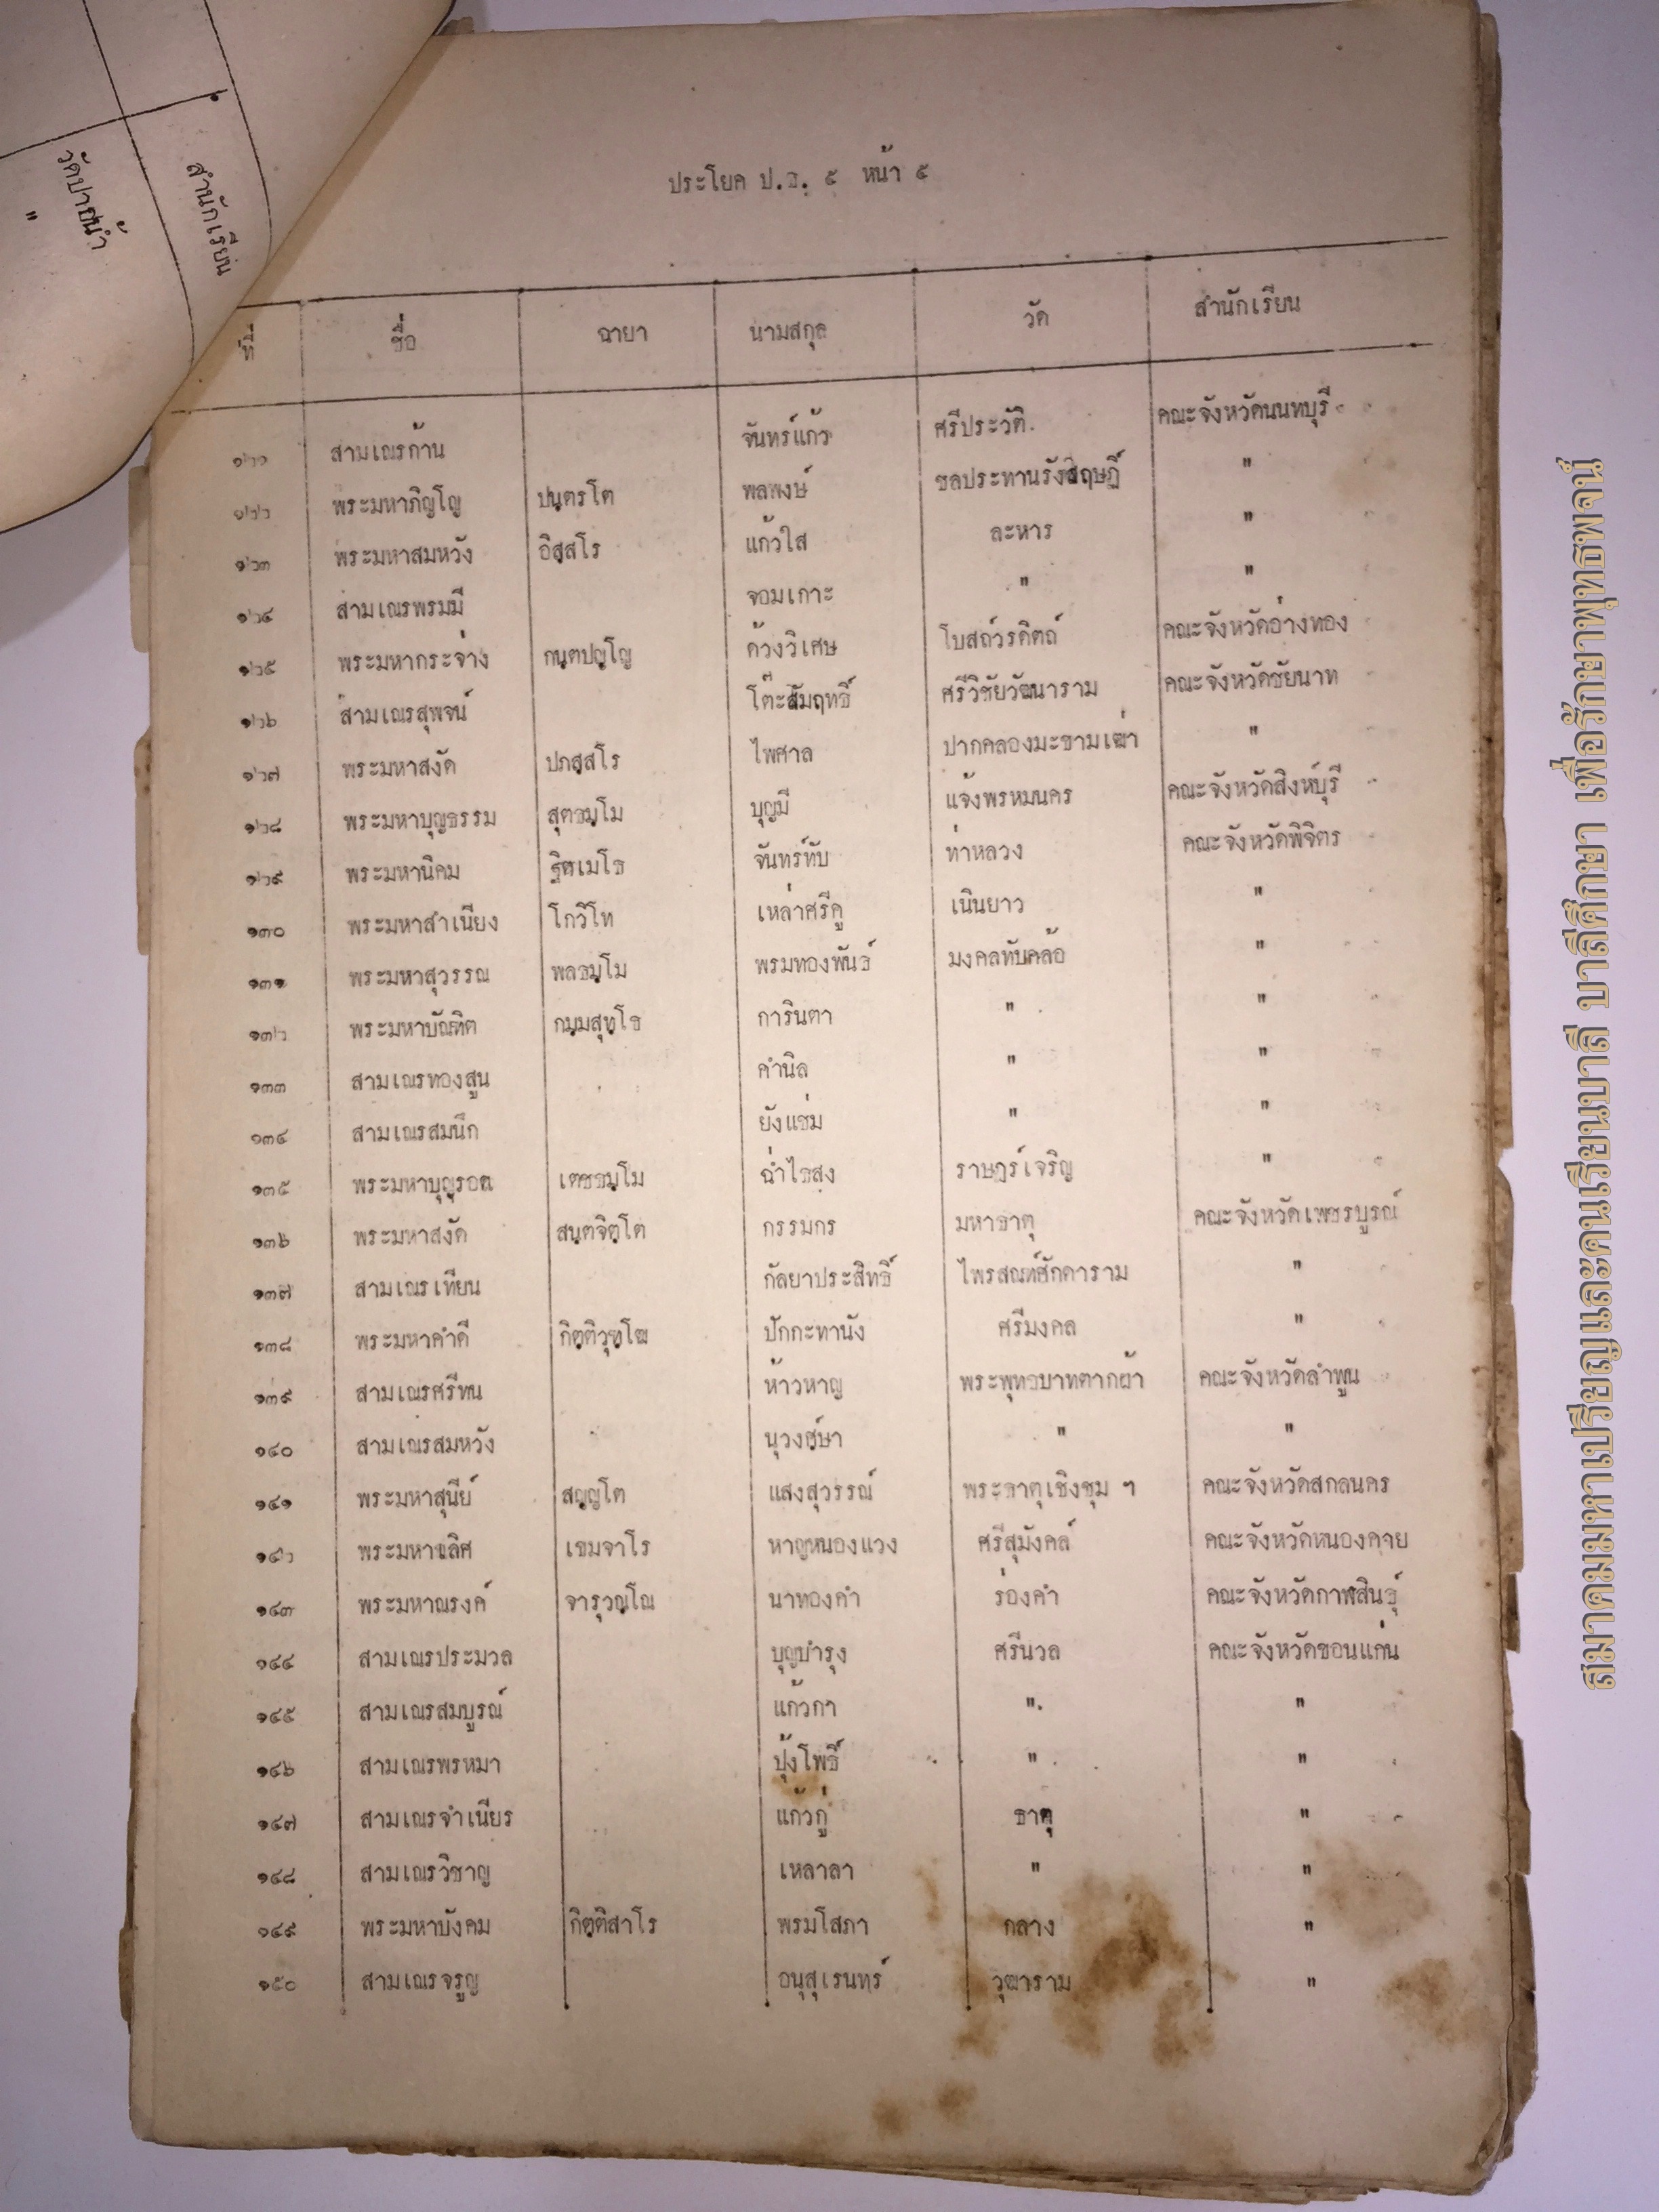 สำนักเรียน
วัดปาย่น้ำ
"
ประโยค ป.ธ. ๕ หน้า ๕
ที่ ชื่อ ฉายา นามสกุล วัด สำนักเรียน
๑๒๑ สามเณรก้าน จันทร์แก้ว ศรีประวัติ. คณะจังหวัดนนทบุรี
๑๒๒ พระมหาภิญโญ ปนฺตรโต พลพงษ์ ชลประทานรังสฤษฎิ์ "
๑๒๓ พระมหาสมหวัง อิสฺสโร แก้วใส ละหาร "
๑๒๔ สามเณรพรมมี จอมเกาะ " "
๑๒๕ พระมหากระจ่าง กนฺตปญฺโญ ด้วงวิเศษ โบสถ์วรดิตถ์ คณะจังหวัดอ่างทอง
๑๒๖ สามเณรสุพจน์ โต๊ะสัมฤทธิ์ ศรีวิชัยวัฒนาราม คณะจังหวัดชัยนาท
๑๒๗ พระมหาสงัด ปภสฺสโร ไพศาล ปากคลองมะขามเฒ่า "
๑๒๘ พระมหาบุญธรรม สุตธมฺโม บุญมี แจ้งพรหมนคร คณะจังหวัดสิงห์บุรี
๑๒๙ พระมหานิคม ฐิตเมโธ จันทร์ทับ ท่าหลวง คณะจังหวัดพิจิตร
๑๓๐ พระมหาสำเนียง โกวิโท เหล่าศรีคู เนินยาว "
๑๓๑ พระมหาสุวรรณ พลธมฺโม พรมทองพันธ์ มงคลทับคล้อ "
๑๓๒ พระมหาบัณฑิต กมฺมสุทฺโธ การินตา " "
๑๓๓ สามเณรทองสูน คำนิล " "
๑๓๔ สามเณรสมนึก ยังแช่ม " "
๑๓๕ พระมหาบุญรอด เตชธมฺโม ฉ่ำไธสง ราษฎร์เจริญ "
๑๓๖ พระมหาสงัด สนฺตจิตฺโต กรรมกร มหาธาตุ คณะจังหวัดเพชรบูรณ์
๑๓๗ สามเณรเทียน กัลยาประสิทธิ์ ไพรสณฑ์ศักดาราม "
๑๓๘ พระมหาคำดี กิตฺติวุฑฺโฒ ปักกะทานัง ศรีมงคล "
๑๓๙ สามเณรศรีทน ห้าวหาญ พระพุทธบาทตากผ้า คณะจังหวัดลำพูน
๑๔๐ สามเณรสมหวัง นุวงศ์ษา " "
๑๔๑ พระมหาสุนีย์ สญฺญโต แสงสุวรรณ์ พระธาตุเชิงชุม ฯ คณะจังหวัดสกลนคร
๑๔๒ พระมหาเลิศ เขมจาโร หาญหนองแวง ศรีสุมังคล์ คณะจังหวัดหนองคาย
๑๔๓ พระมหาณรงค์ จารุวณฺโณ นาทองคำ ร่องคำ คณะจังหวัดกาฬสินธุ์
๑๔๔ สามเณรประมวล บุญบำรุง ศรีนวล คณะจังหวัดขอนแก่น
๑๔๕ สามเณรสมบูรณ์ แก้วกา ". "
๑๔๖ สามเณรพรหมา ปุ้งโพธิ์ " "
๑๔๗ สามเณรจำเนียร แก้วกู่ ธาตุ "
๑๔๘ สามเณรวิชาญ เหลาลา " "
๑๔๙ พระมหาบังคม กิตฺติสาโร พรมโสภา กลาง "
๑๕๐ สามเณรจรูญ อนุสุเรนทร์ วุฒาราม "
สมาคมมหาเปรียญและคนเรียนบาลี บาลีศึกษา เพื่อรักษาพุทธพจน์